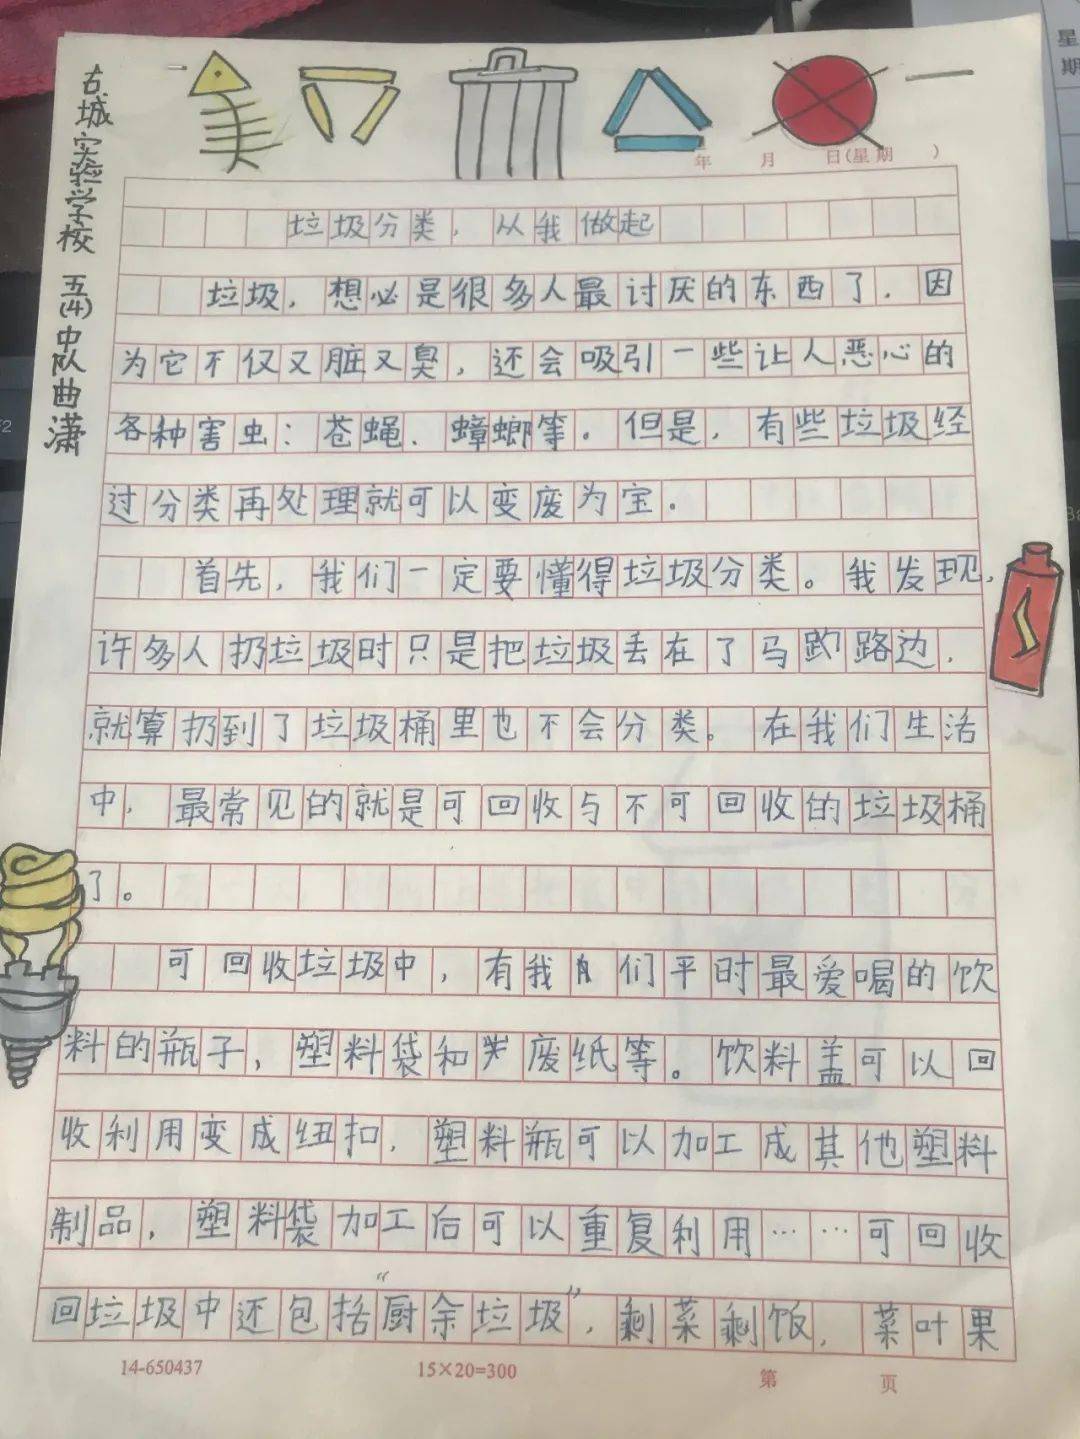 古城实验学校 五(4)中队曲潇
年 月 日(星期 )
垃圾分类，从我做起
垃圾，想必是很多人最讨厌的东西了，因
为它不仅又脏又臭，还会吸引一些让人恶心的
各种害虫：苍蝇、蟑螂等。但是，有些垃圾经
过分类再处理就可以变废为宝。
首先，我们一定要懂得垃圾分类。我发现，
许多人扔垃圾时只是把垃圾丢在了马路边，
就算扔到了垃圾桶里也不会分类。在我们生活
中，最常见的就是可回收与不可回收的垃圾桶
了。
可回收垃圾中，有我们平时最爱喝的饮
料的瓶子，塑料袋和废纸等。饮料盖可以回
收利用变成纽扣，塑料瓶可以加工成其他塑料
制品，塑料袋加工后可以重复利用……可回收
回垃圾中还包括“厨余垃圾”，剩菜剩饭，菜叶果
14-650437 15×20=300 第 页
星
期